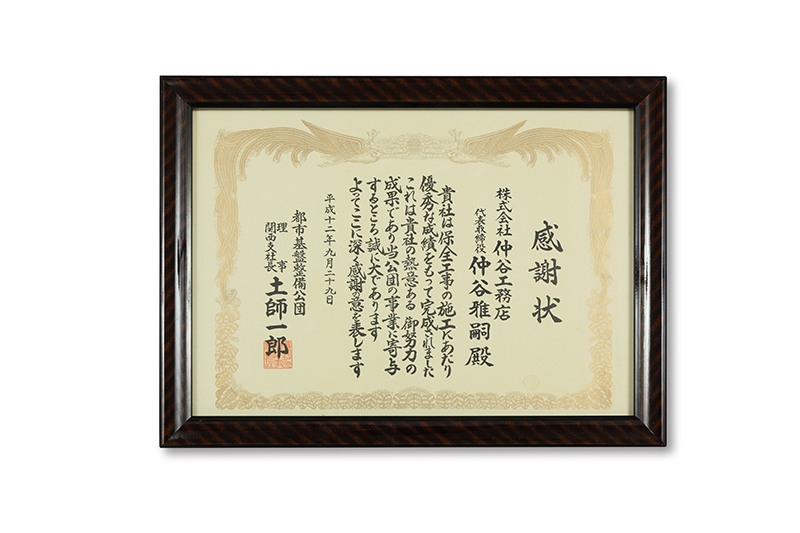 感謝状
株式会社 仲谷工務店
代表取締役 仲谷雅嗣 殿
貴社は保全工事の施工にあたり
優秀な成績をもって完成されました
これは貴社の熱意ある御努力の
成果であり当公団の事業に寄与
するところ誠に大であります
よってここに深く感謝の意を表します
平成十二年九月二十九日
都市基盤整備公団
理事
関西支社長 土師一郎